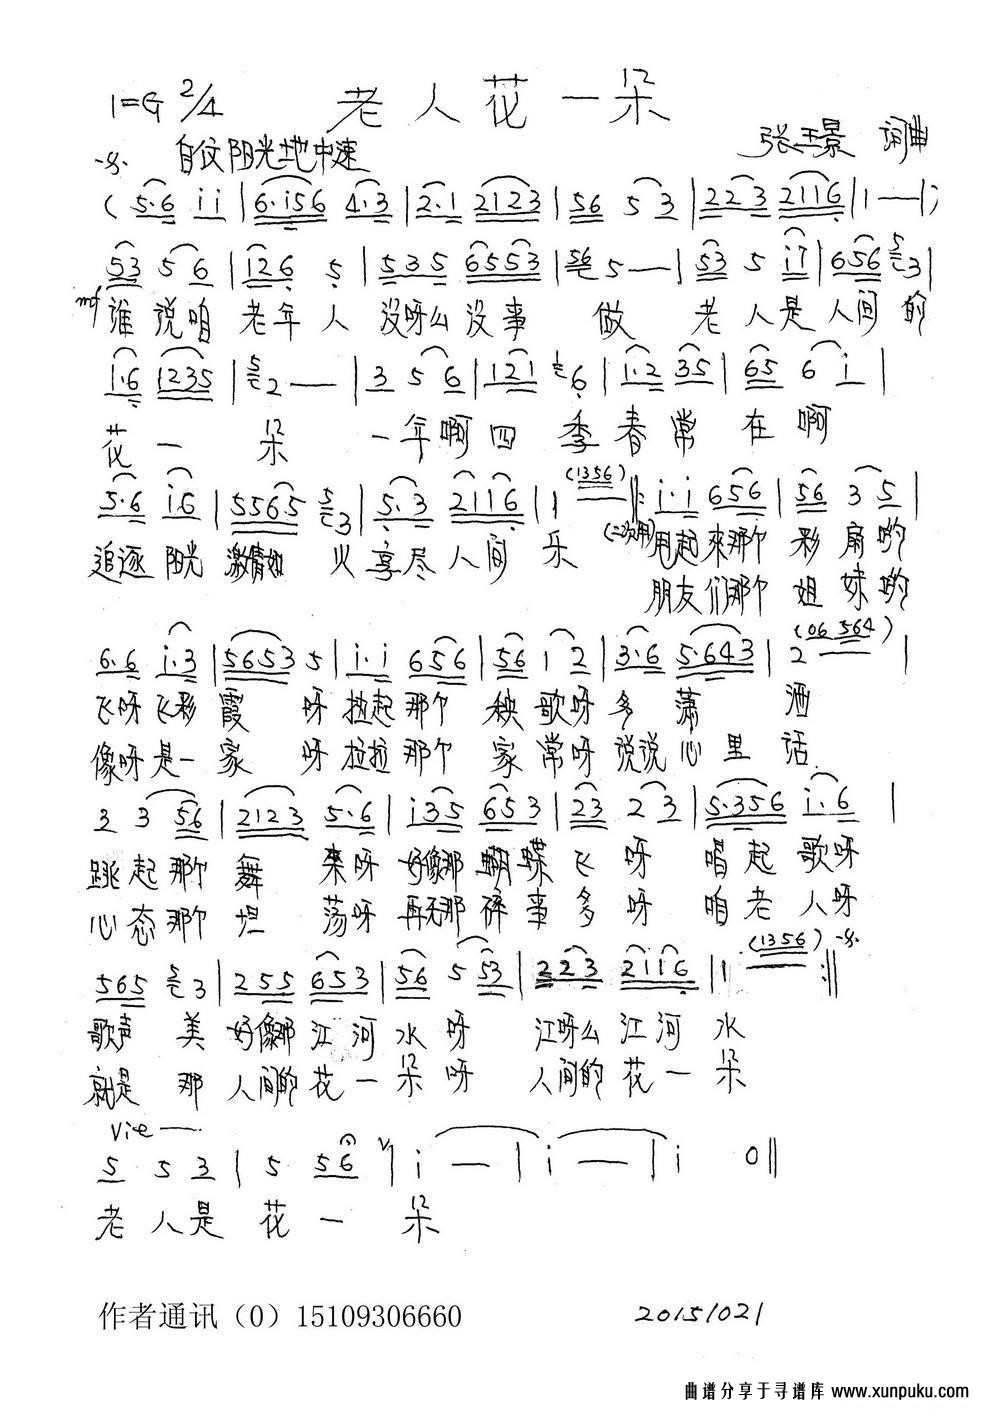 1=G 2/4 老人花一朵
自位阳光地中速 张玉景 词曲
(5·6 i i | 6·i56 4·3 | 2·1 2123 | 56 5 3 | 223 2116 | 1 — |)
53 5 6 | 126 5 | 535 6553 | 56 5 — | 53 5 i7 | 656 5 3 |
mf 谁说咱老年人没呀么没事做老人是人间的
1·6 1235 | 5 2 — | 3 5 6 | 121 1 6 | 1·2 35 | 65 6 i |
花一朵一年啊四季春常在啊
(1356)
5·6 i·6 | 5565 5 3 | 5·3 2116 | 1 ‖: i·i 656 | 56 3 5 |
追逐阳光激情如火享尽人间乐 (二次用) 甩起来那个彩扇哟
朋友们那个姐妹哟
(06 564)
6·6 i·3 | 5653 5 | i·i 656 | 56 1 2 | 3·6 5·643 | 2 |
飞呀飞彩霞呀拉起那个秧歌呀多潇洒
像呀是一家呀拉拉那个家常呀说说心里话
3 3 56 | 2123 5·6 | i35 653 | 23 2 3 | 5·356 i·6 |
跳起那个舞来呀好像那蝴蝶飞呀唱起歌呀
心态那个坦荡呀再无那碎事多呀咱老人呀
(1356)
565 5 3 | 255 653 | 56 5 53 | 223 2116 | 1 :‖
歌声美好像那江河水呀江呀么江河水
就是那人间的花一朵呀人间的花一朵
5 5 3 | 5 56 | i — | i — | i 0 ‖
老人是花一朵
作者通讯（0）15109306660 20151021
曲谱分享于寻谱库 www.xunpuku.com